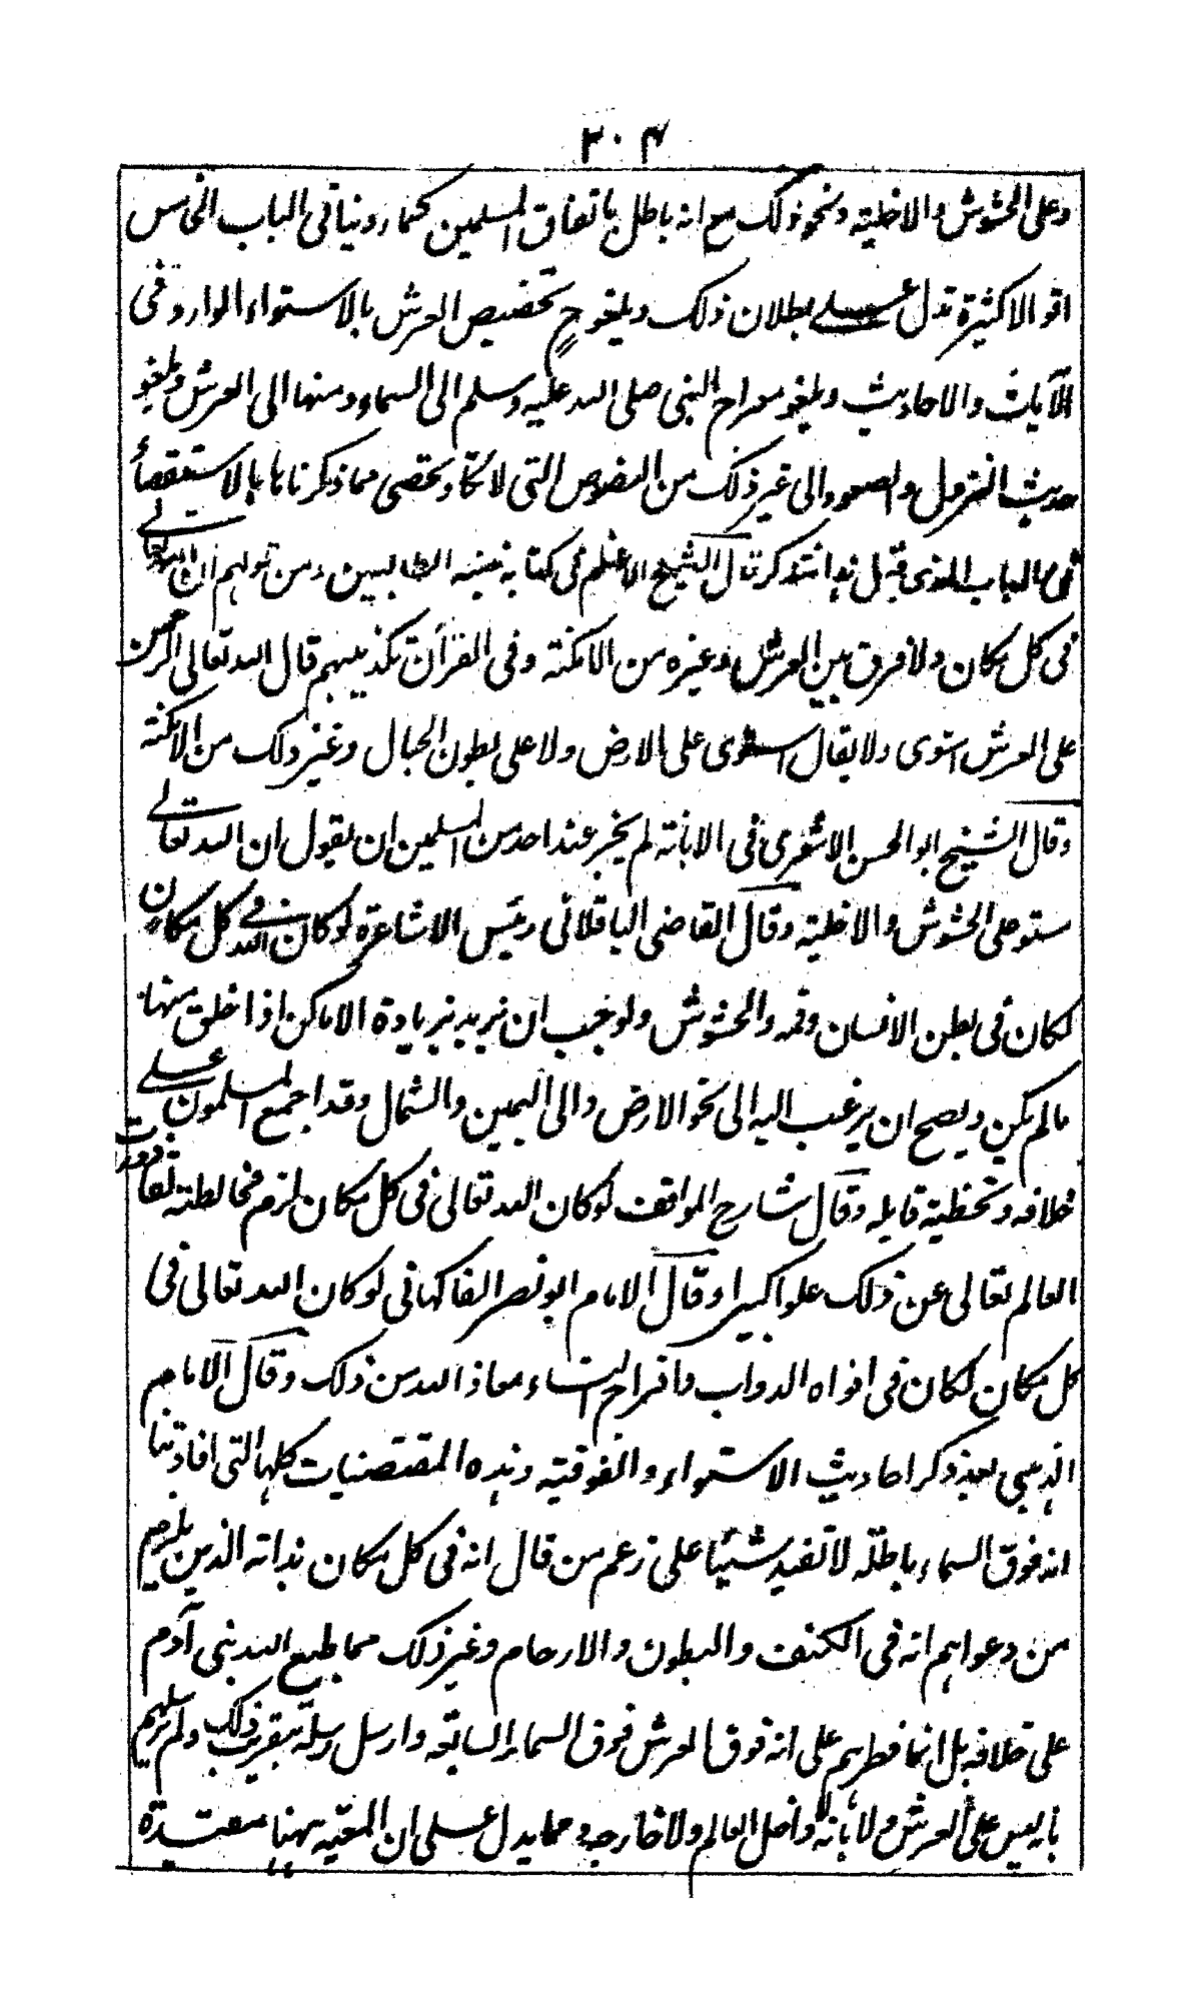 ٣٠٤
وعلى الحشوش والاخلية ونحو ذلك مع انه باطل باتفاق المسلمين كما روينا في الباب الخامس
اقوالا كثيرة تدل على بطلان ذلك ويلغو ح تخصيص العرش بالاستواء الوارد في
الآيات والاحاديث ويلغو معراج النبي صلى الله عليه وسلم الى السماء ومنها الى العرش ويلغو
حديث النزول والصعود والى غير ذلك من النصوص التي لا تكاد تحصى مما ذكرناها بالاستقصاء
في الباب الذي قبل هذا فتذكر قال الشيخ الاعظم في كتابه غنية الطالبين ومن قولهم ان الله تعالى
في كل مكان ولا فرق بين العرش وغيره من الامكنة وفي القرآن تكذيبهم قال الله تعالى الرحمن
على العرش استوى ولا يقال استوى على الارض ولا على بطون الجبال وغير ذلك من الامكنة
وقال الشيخ ابو الحسن الاشعري في الابانة لم يجز عند احد من المسلمين ان يقول ان الله تعالى
مستو على الحشوش والاخلية وقال القاضي الباقلاني رئيس الاشاعرة لو كان الله في كل مكان
لكان في بطن الانسان وفمه والحشوش ولوجب ان يزيد بزيادة الاماكن اذا خلق منها
مالم يكن ويصح ان يرغب اليه الى نحو الارض والى اليمين والشمال وقد اجمع المسلمون على
خلافه وتخطية قايله وقال شارح المواقف لو كان الله تعالى في كل مكان لزم مخالطته لقاذورات
العالم تعالى عن ذلك علوا كبيرا وقال الامام ابو نصر الفاكهاني لو كان الله تعالى في
كل مكان لكان في افواه الدواب وافراج النساء معاذ الله من ذلك وقال الامام
الذهبي بعد ذكر احاديث الاستواء والفوقية وهذه المقتضيات كلها التي افادتنا
انه فوق السماء باطلة لا تفيد شيئا على زعم من قال انه في كل مكان بذاته الذين يلزم
من دعواهم انه في الكنف والبطون والارحام وغير ذلك مما طبع الله بني آدم
على خلافه بل انما فطرهم على انه فوق العرش فوق السماء السابعة وارسل رسله بتقرير ذلك ولم يرسلهم
بانه ليس على العرش ولا بانه لا داخل العالم ولا خارجه ومما يدل على ان المعية ههنا معتدة